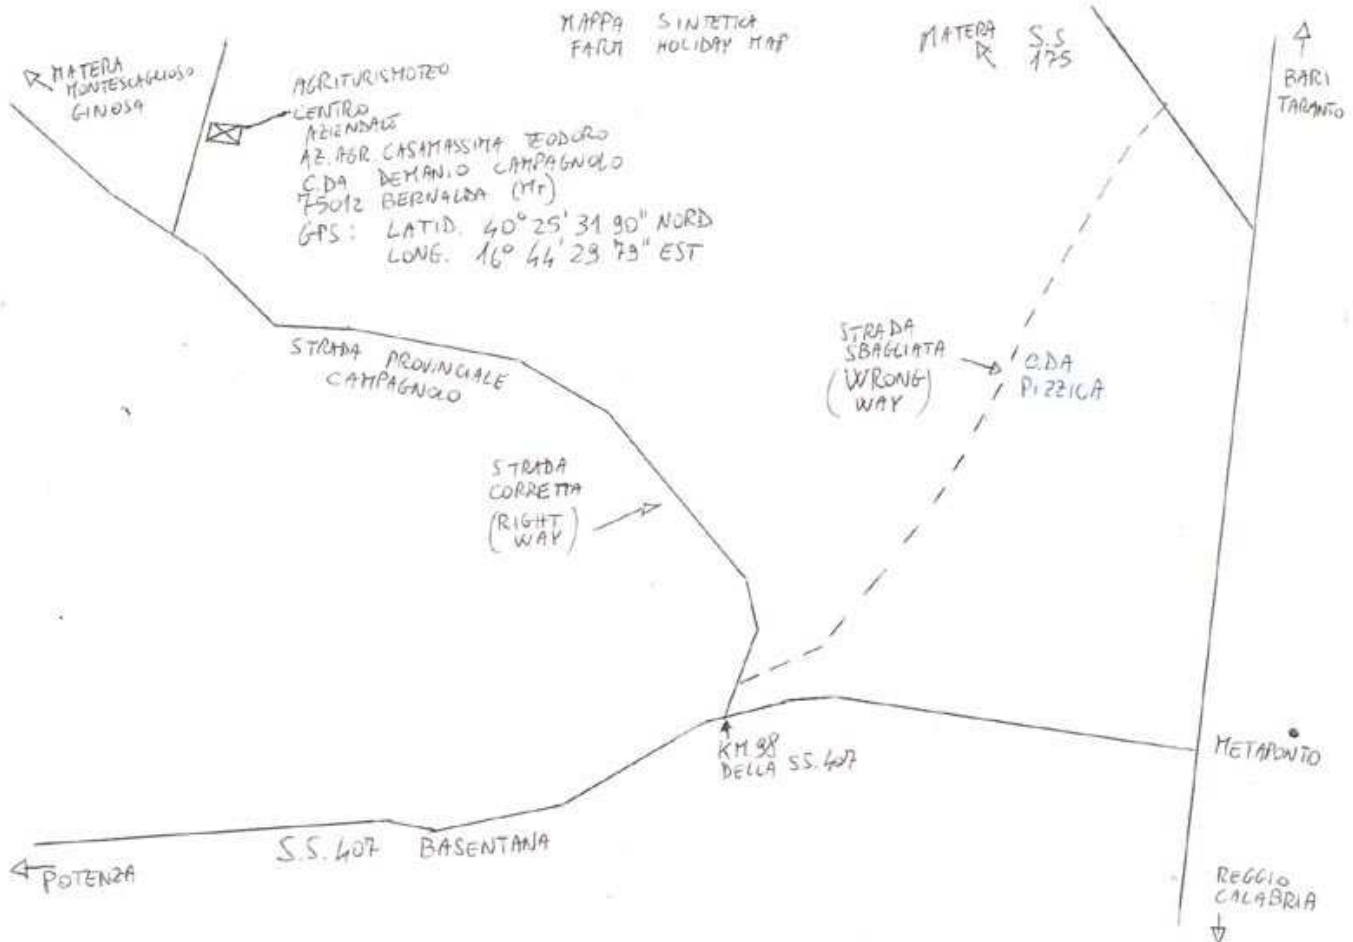 MAPPA SINTETICA
FARM HOLIDAY MAP
MATERA
MONTESCAGLIOSO
GINOSA
AGRITURISMOTEO
CENTRO
AZIENDALE
AZ. AGR. CASAMASSIMA TEODORO
C.DA DEMANIO CAMPAGNOLO
75012 BERNALDA (MT)
GPS: LATID. 40° 25' 31 90" NORD
LONG. 16° 44' 29 79" EST
MATERA
S.S
175
BARI
TARANTO
STRADA PROVINCIALE
CAMPAGNOLO
STRADA
SBAGLIATA
(WRONG
WAY)
C.DA
PIZZICA
STRADA
CORRETTA
(RIGHT
WAY)
KM 98
DELLA SS. 407
METAPONTO
S.S. 407 BASENTANA
POTENZA
REGGIO
CALABRIA